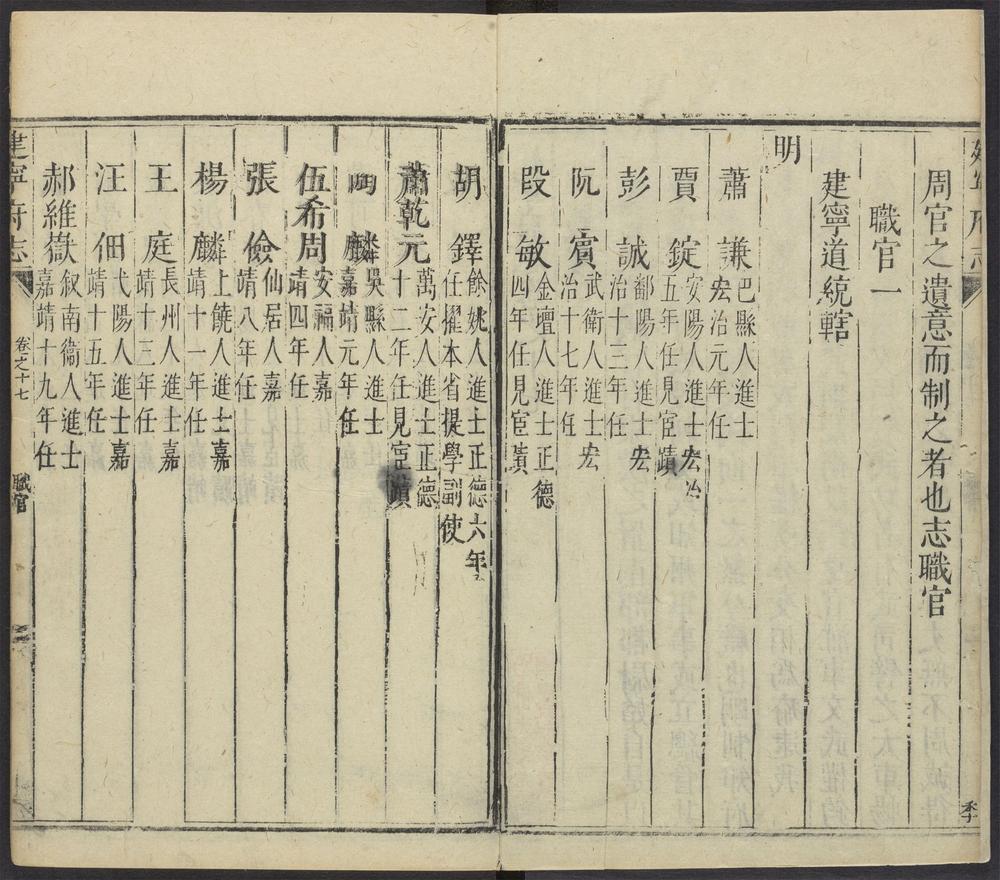 周官之遺意而制之者也志職官
職官一
建寧道統轄
明
蕭謙 巴縣人進士宏治元年任
賈錠 安陽人進士宏治五年任見宦蹟
彭誠 鄱陽人進士宏治十三年任
阮賓 武衛人進士宏治十七年任
段敏 金壇人進士正德四年任見宦蹟
胡鐸 餘姚人進士正德六年任擢本省提學副使
蕭乾元 萬安人進士正德十二年任見宦蹟
麟 吳縣人進士嘉靖元年任
伍希周 安福人嘉靖四年任
張儉 仙居人嘉靖八年任
楊麟 上饒人進士嘉靖十一年任
王庭 長州人進士嘉靖十三年任
汪佃 弋陽人進士嘉靖十五年任
郝維嶽 敘南衛人進士嘉靖十九年任
建寧府志
卷之十七
職官